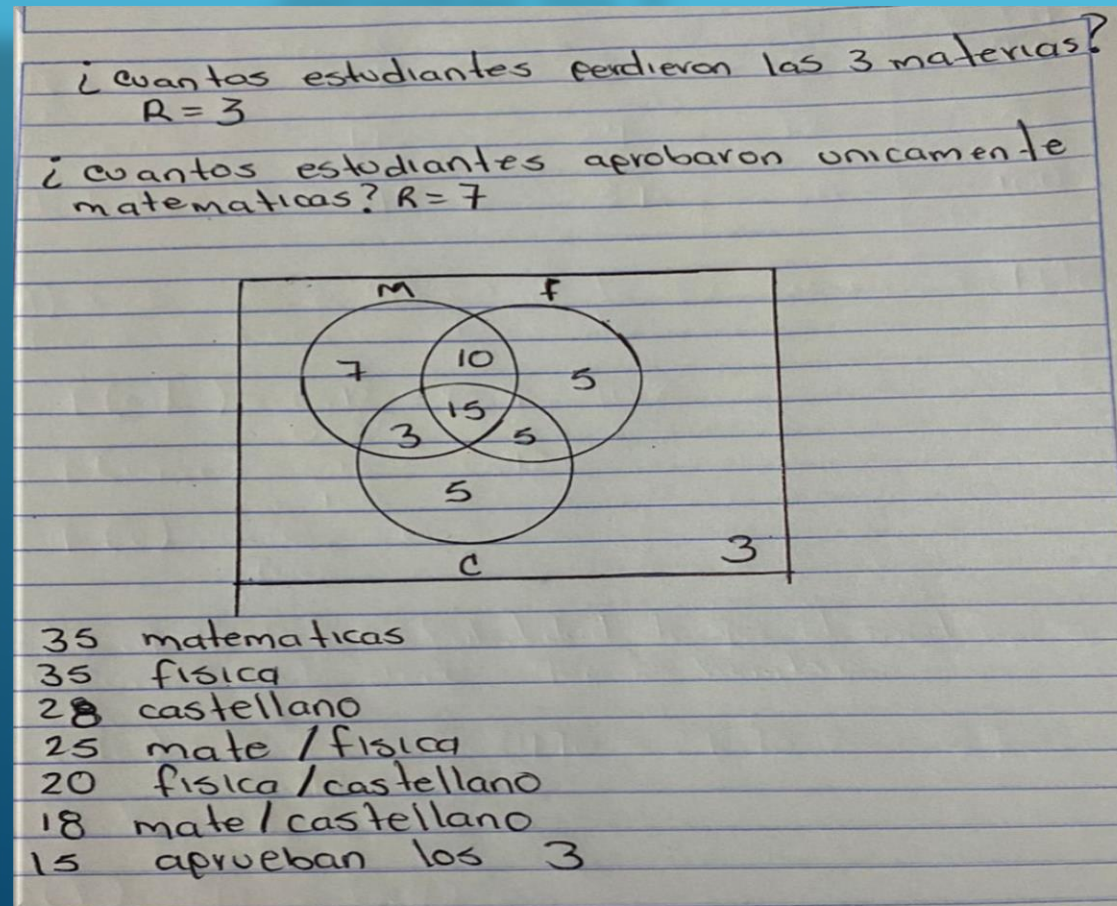 ¿ cuantas estudiantes perdieron las 3 materias?
R = 3
¿ cuantos estudiantes aprobaron unicamente
matematicas? R = 7
M F
7 10 5
15
3 5
5
3
C
35 matematicas
35 fisica
28 castellano
25 mate / fisica
20 fisica / castellano
18 mate / castellano
15 aprueban los 3